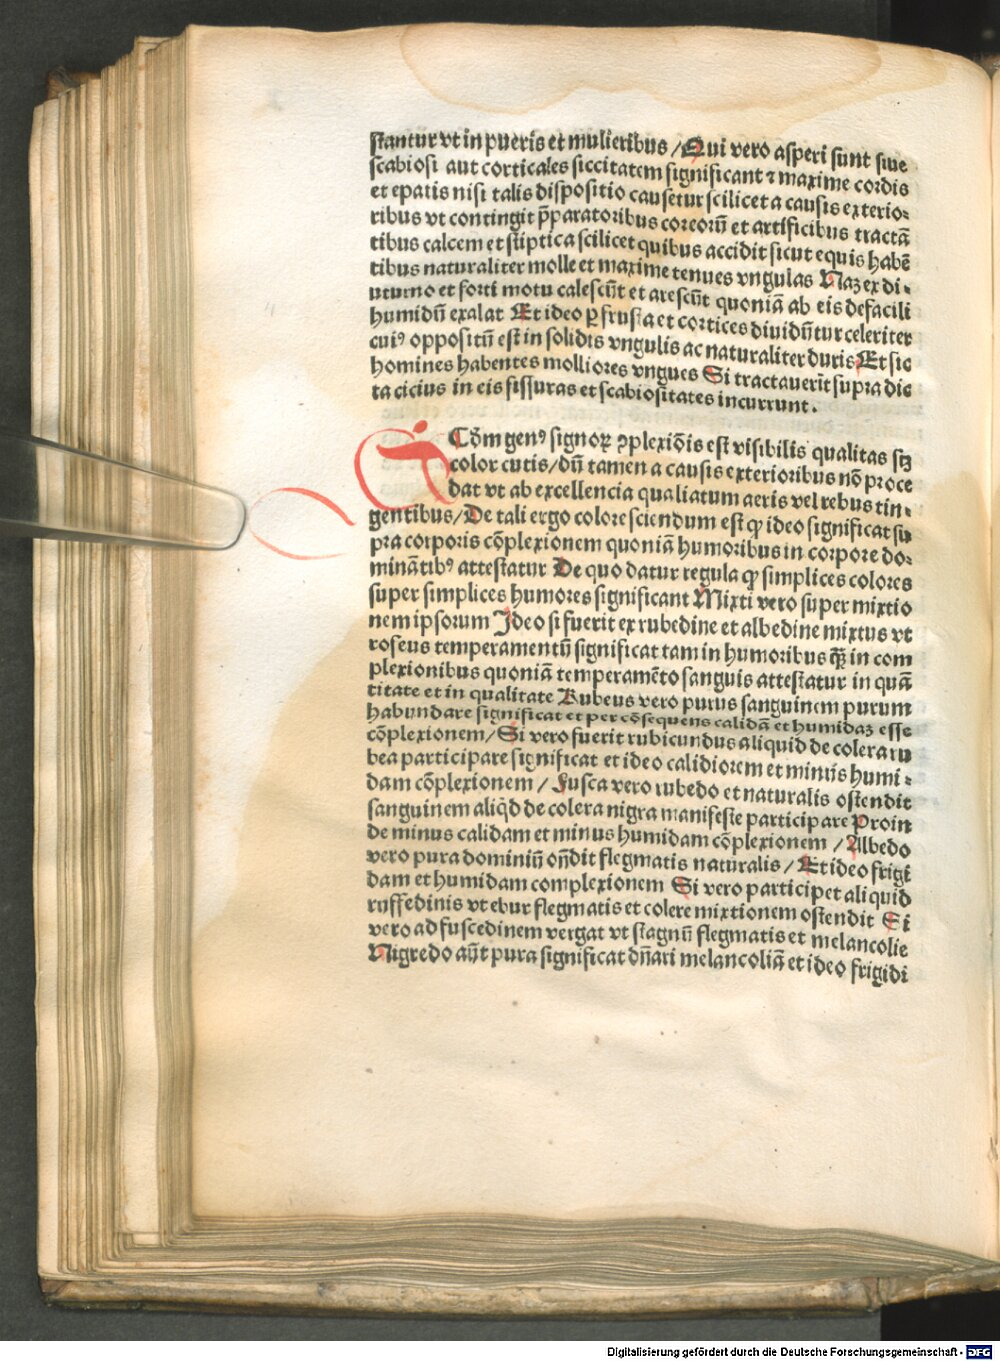 stantur vt in pueris et mulieribus / Qui vero asperi sunt siue
scabiosi aut corticales siccitatem significant ⁊ maxime cordis
et epatis nisi talis dispositio causetur scilicet a causis exterio-
ribus vt contingit p̄paratoribus coreorū et artificibus tractā
tibus calcem et stiptica scilicet quibus accidit sicut equis habē
tibus naturaliter molle et maxime tenues vngulas Naꝫ ex di-
uturno et forti motu calescūt et arescūt quoniā ab eis defacili
humidū exalat Et ideo ꝑ frusta et cortices diuidūtur celeriter
cuiꝰ oppositū est in solidis vngulis ac naturaliter duris Et sic
homines habentes molliores vngues Si tractauerīt supra dic
ta cicius in eis fissuras et scabiositates incurrunt.
TCōm genꝰ signoꝝ ꝯplexiōis est visibilis qualitas sꝫ
color cutis / dū tamen a causis exterioribus nō proce
dat vt ab excellencia qualiatum aeris vel rebus tin-
gentibus / De tali ergo colore sciendum est ꝙ ideo significat su
pra corporis cōplexionem quoniā humoribus in corpore do-
minātibꝰ attestatur De quo datur regula ꝙ simplices colores
super simplices humores significant Mixti vero super mixtio
nem ipsorum Ideo si fuerit ex rubedine et albedine mixtus vt
roseus temperamentū significat tam in humoribus q̄ꝫ in com
plexionibus quoniā temperamēto sanguis attestatur in quā
titate et in qualitate Rubeus vero purus sanguinem purum
habundare significat et per cōsequens calidā et humidaꝫ esse
cōplexionem / Si vero fuerit rubicundus aliquid de colera ru
bea participare significat et ideo calidiorem et minus humi-
dam cōplexionem / Fusca vero rubedo et naturalis ostendit
sanguinem aliq̄d de colera nigra manifeste participare Proin
de minus calidam et minus humidam cōplexionem / Albedo
vero pura dominiū on̄dit flegmatis naturalis / Et ideo frigi
dam et humidam complexionem Si vero participet aliquid
ruffedinis vt ebur flegmatis et colere mixtionem ostendit Si
vero ad fuscedinem vergat vt stagnū flegmatis et melancolie
Nigredo aūt pura significat dn̄ari melancoliā et ideo frigidi
Digitalisierung gefördert durch die Deutsche Forschungsgemeinschaft - DFG